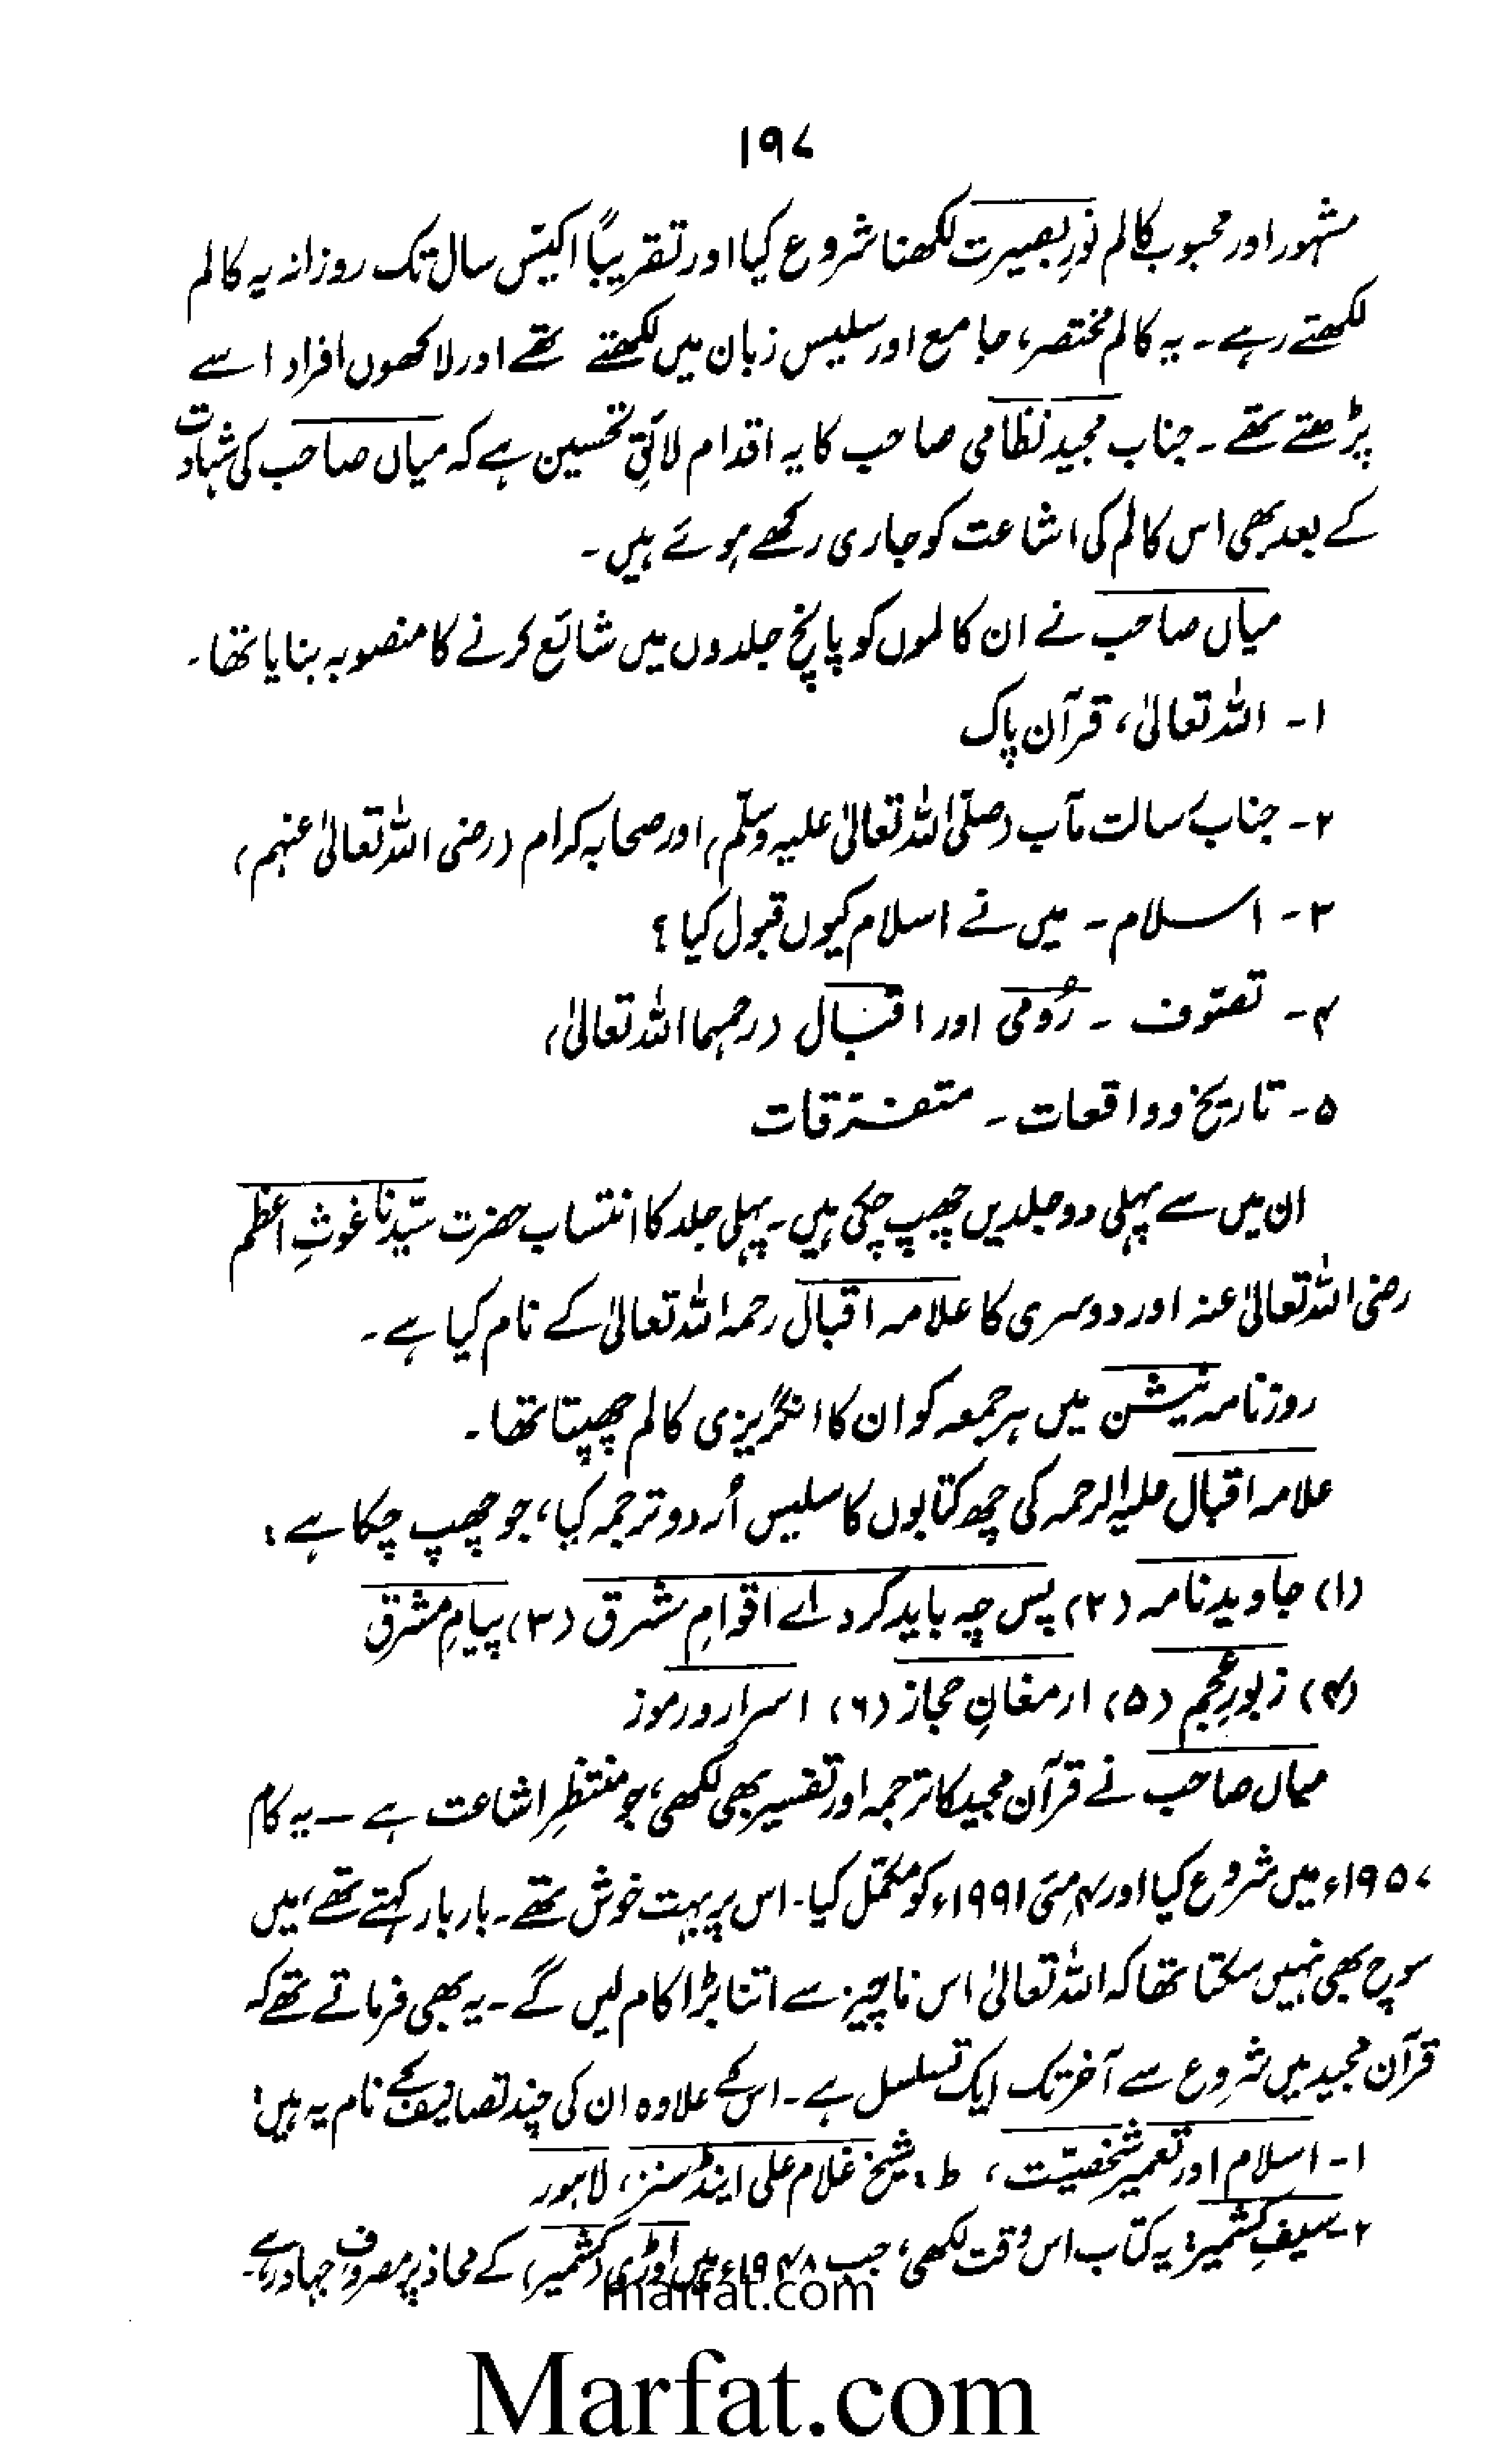 ۱۹۷
مشہور اور محبوب کالم نورِ بصیرت لکھنا شروع کیا اور تقریباً اکیتس سال تک روزانہ یہ کالم
لکھتے رہے۔ یہ کالم مختصر، جامع اور سلیس زبان میں لکھتے تھے اور لاکھوں افراد اسے
پڑھتے تھے۔ جناب مجید نظامی صاحب کا یہ اقدام لائقِ تحسین ہے کہ میاں صاحب کی شہادت
کے بعد بھی اس کالم کی اشاعت کو جاری رکھے ہوئے ہیں۔
میاں صاحب نے ان کالموں کو پانچ جلدوں میں شائع کرنے کا منصوبہ بنایا تھا۔
۱۔ اللہ تعالیٰ، قرآن پاک
۲۔ جناب رسالت مآب (صلّی اللہ تعالیٰ علیہ وسلّم) اور صحابہ کرام (رضی اللہ تعالیٰ عنہم)
۳۔ اسلام۔ میں نے اسلام کیوں قبول کیا؟
۴۔ تصوّف ۔ رُومی اور اقبال (رحمہما اللہ تعالیٰ)
۵۔ تاریخ و واقعات ۔ متفرقات
ان میں سے پہلی دو جلدیں چھپ چکی ہیں۔ پہلی جلد کا انتساب حضرت سیّدنا غوثِ اعظم
رضی اللہ تعالیٰ عنہ اور دوسری کا علامہ اقبال رحمہ اللہ تعالیٰ کے نام کیا ہے۔
روزنامہ نیشن میں ہر جمعہ کو ان کا انگریزی کالم چھپتا تھا۔
علامہ اقبال علیہ الرحمہ کی چھ کتابوں کا سلیس اُردو ترجمہ کیا، جو چھپ چکا ہے:
(۱) جاوید نامہ (۲) پس چہ باید کرد اے اقوامِ مشرق (۳) پیامِ مشرق
(۴) زبورِ عجم (۵) ارمغانِ حجاز (۶) اسرار و رموز
میاں صاحب نے قرآن مجید کا ترجمہ اور تفسیر بھی لکھی، جو منتظرِ اشاعت ہے — یہ کام
۱۹۵۷ء میں شروع کیا اور ۴ مئی ۱۹۹۱ء کو مکمّل کیا۔ اس پر بہت خوش تھے۔ بار بار کہتے تھے، میں
سوچ بھی نہیں سکتا تھا کہ اللہ تعالیٰ اس ناچیز سے اتنا بڑا کام لیں گے۔ یہ بھی فرماتے تھے کہ
قرآن مجید میں شروع سے آخر تک ایک تسلسل ہے۔ اس کے علاوہ ان کی چند تصانیف کے نام یہ ہیں:
۱۔ اسلام اور تعمیر شخصیّت، ط: شیخ غلام علی اینڈ سنز، لاہور
۲۔ سیفِ کشمیر: یہ کتاب اس وقت لکھی، جب ۱۹۴۸ء میں اوڑی (کشمیر) کے محاذ پر مصروفِ جہاد رہے۔
marfat.com
Marfat.com